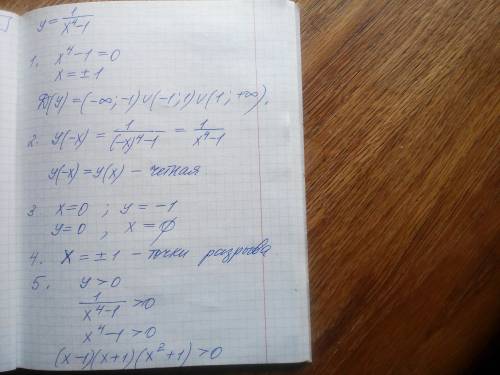 y = 1/(x⁴-1)
1. x⁴-1=0
x = ±1
D(y) = (-∞; -1)∪(-1; 1)∪(1; +∞).
2. y(-x) = 1/((-x)⁴-1) = 1/(x⁴-1)
y(-x) = y(x) – четная
3 x=0 ; y = -1
y=0 , x = ∅
4. x = ±1 – точки разрыва
5. y>0
1/(x⁴-1) >0
x⁴-1>0
(x-1)(x+1)(x²+1)>0